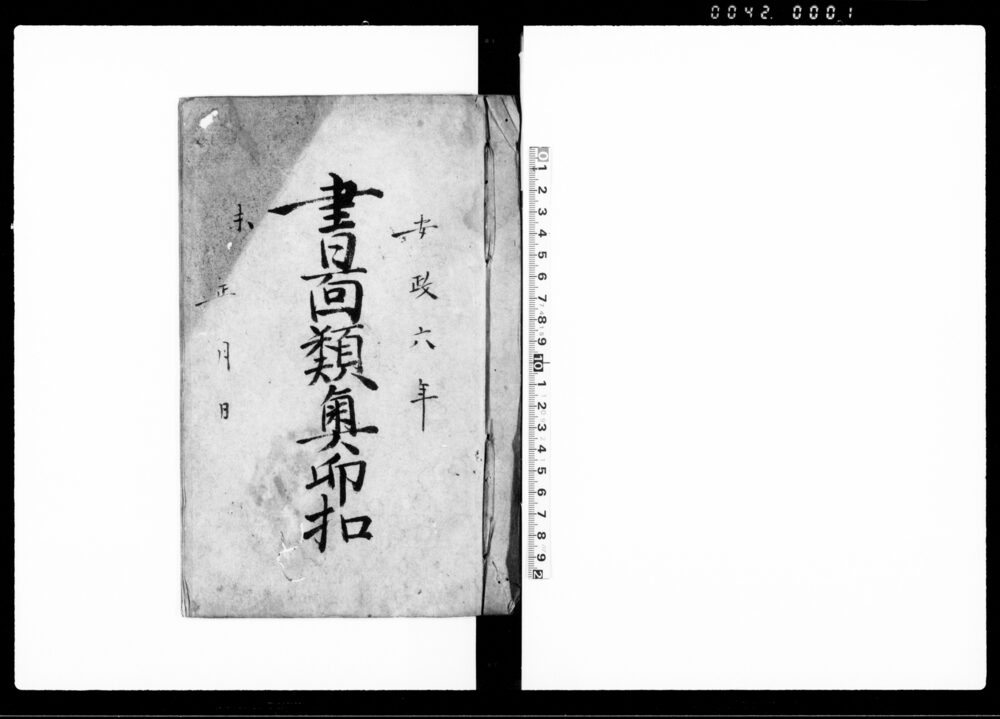 0042. 0001
安政六年
書面類奥印扣
未
正月日
0 1 2 3 4 5 6 7 8 9 10 1 2 3 4 5 6 7 8 9 2